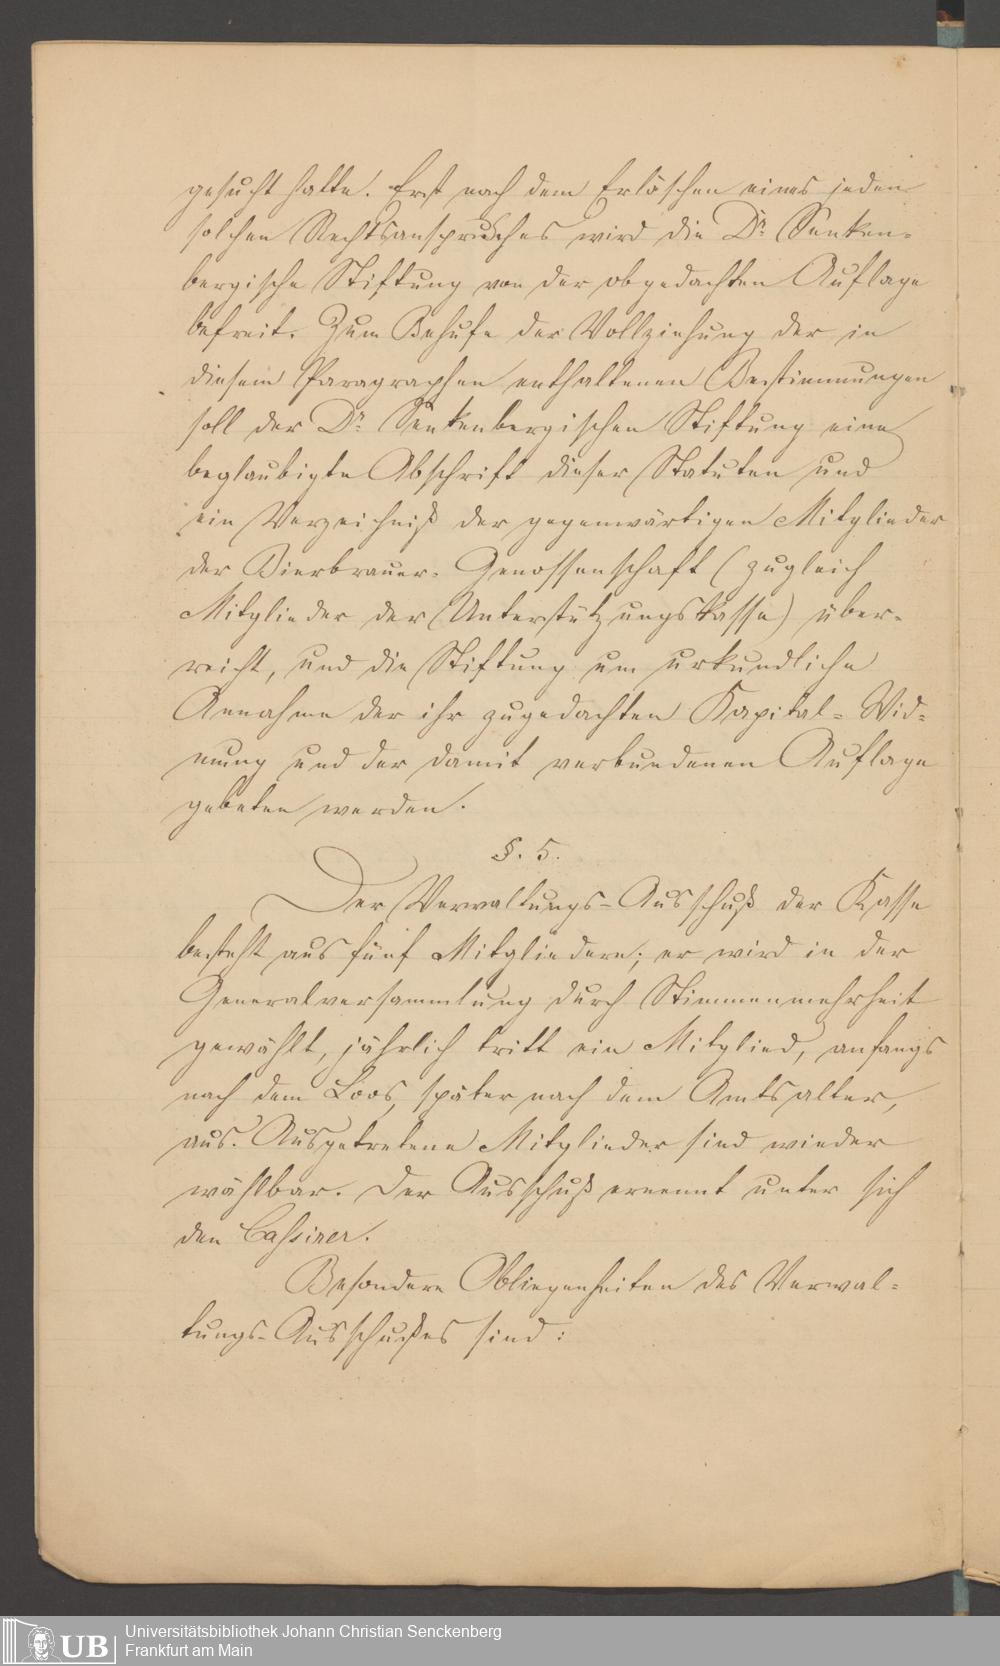 gesucht hatte. Erst nach dem Erlöschen eines jeden
solchen Rechtsanspruches wird die Dr. Senken-
bergische Stiftung von der obgedachten Auflage
befreit. Zum Behufe der Vollziehung der in
diesem Paragraphen enthaltenen Bestimmungen
soll der Dr. Senkenbergischen Stiftung eine
beglaubigte Abschrift dieser Statuten und
ein Verzeichniß der gegenwärtigen Mitglieder
der Bierbrauer-Genossenschaft (zugleich
Mitglieder der Unterstützungskasse) über-
reicht, und die Stiftung um urkundliche
Annahme der ihr zugedachten Kapital-Wid-
mung und der damit verbundenen Auflage
gebeten werden.
§. 5.
Der Verwaltungs-Ausschuß der Kasse
besteht aus fünf Mitgliedern; er wird in der
Generalversammlung durch Stimmenmehrheit
gewählt, jährlich tritt ein Mitglied, anfangs
nach dem Loos, später nach dem Amtsalter,
aus. Ausgetretene Mitglieder sind wieder
wählbar. Der Ausschuß ernennt unter sich
den Cassirer.
Besondere Obliegenheiten des Verwal-
tungs-Ausschußes sind:
UB
Universitätsbibliothek Johann Christian Senckenberg
Frankfurt am Main